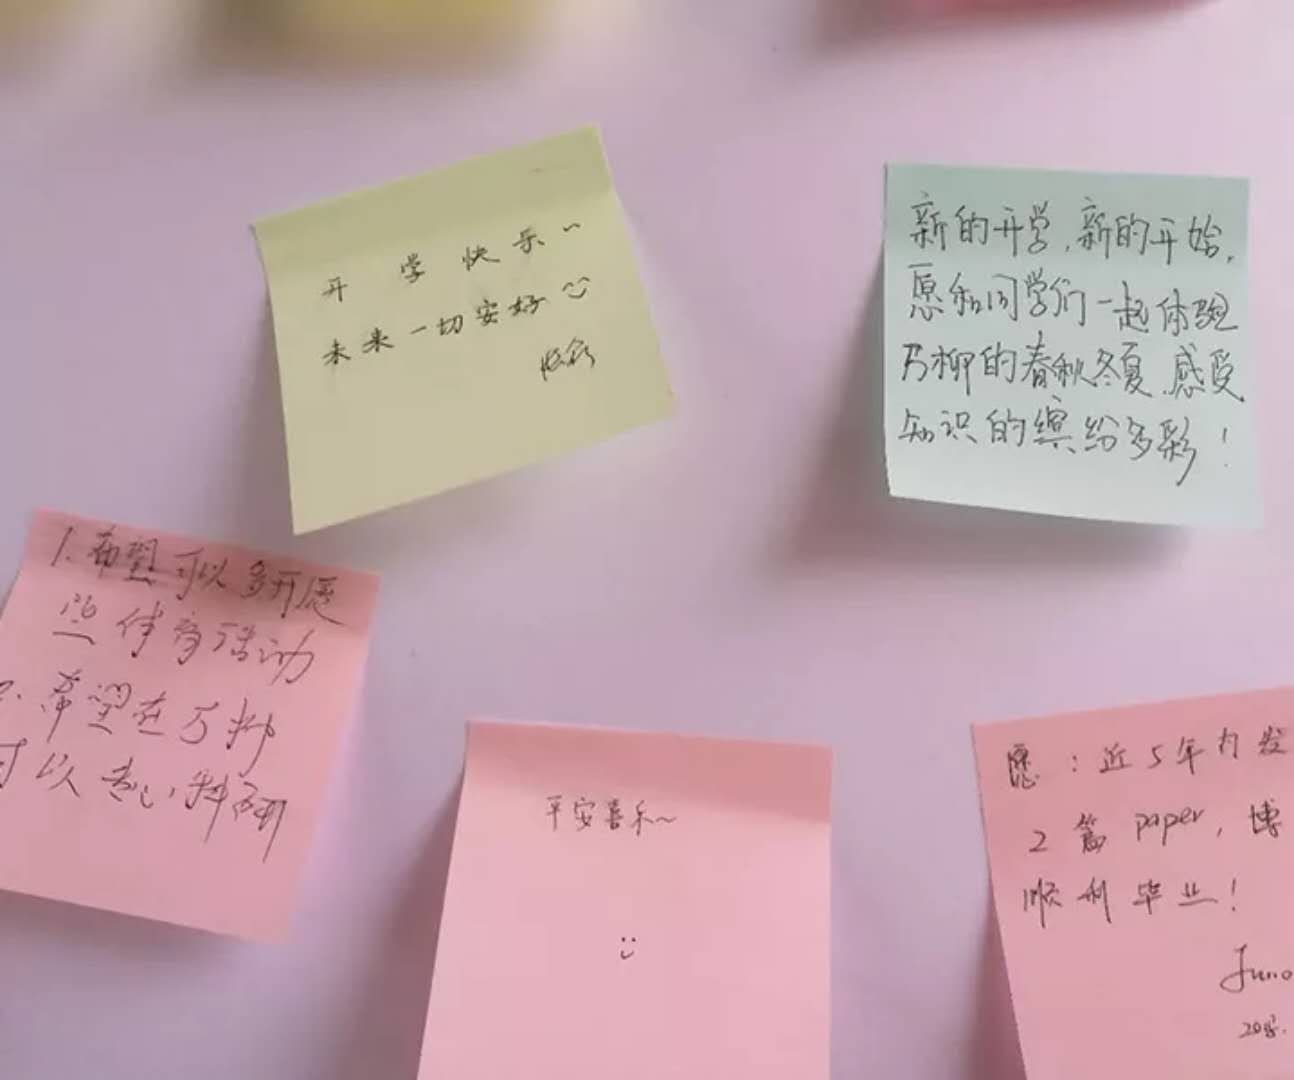 开学快乐~
未来一切安好
新的开学,新的开始,
愿和同学们一起体验
万柳的春秋冬夏,感受
知识的缤纷多彩!
1.希望可以多开展
些体育活动
2.希望在万柳
可以专心科研
平安喜乐~
愿:近5年内发
2篇paper,博
顺利毕业!
Juno